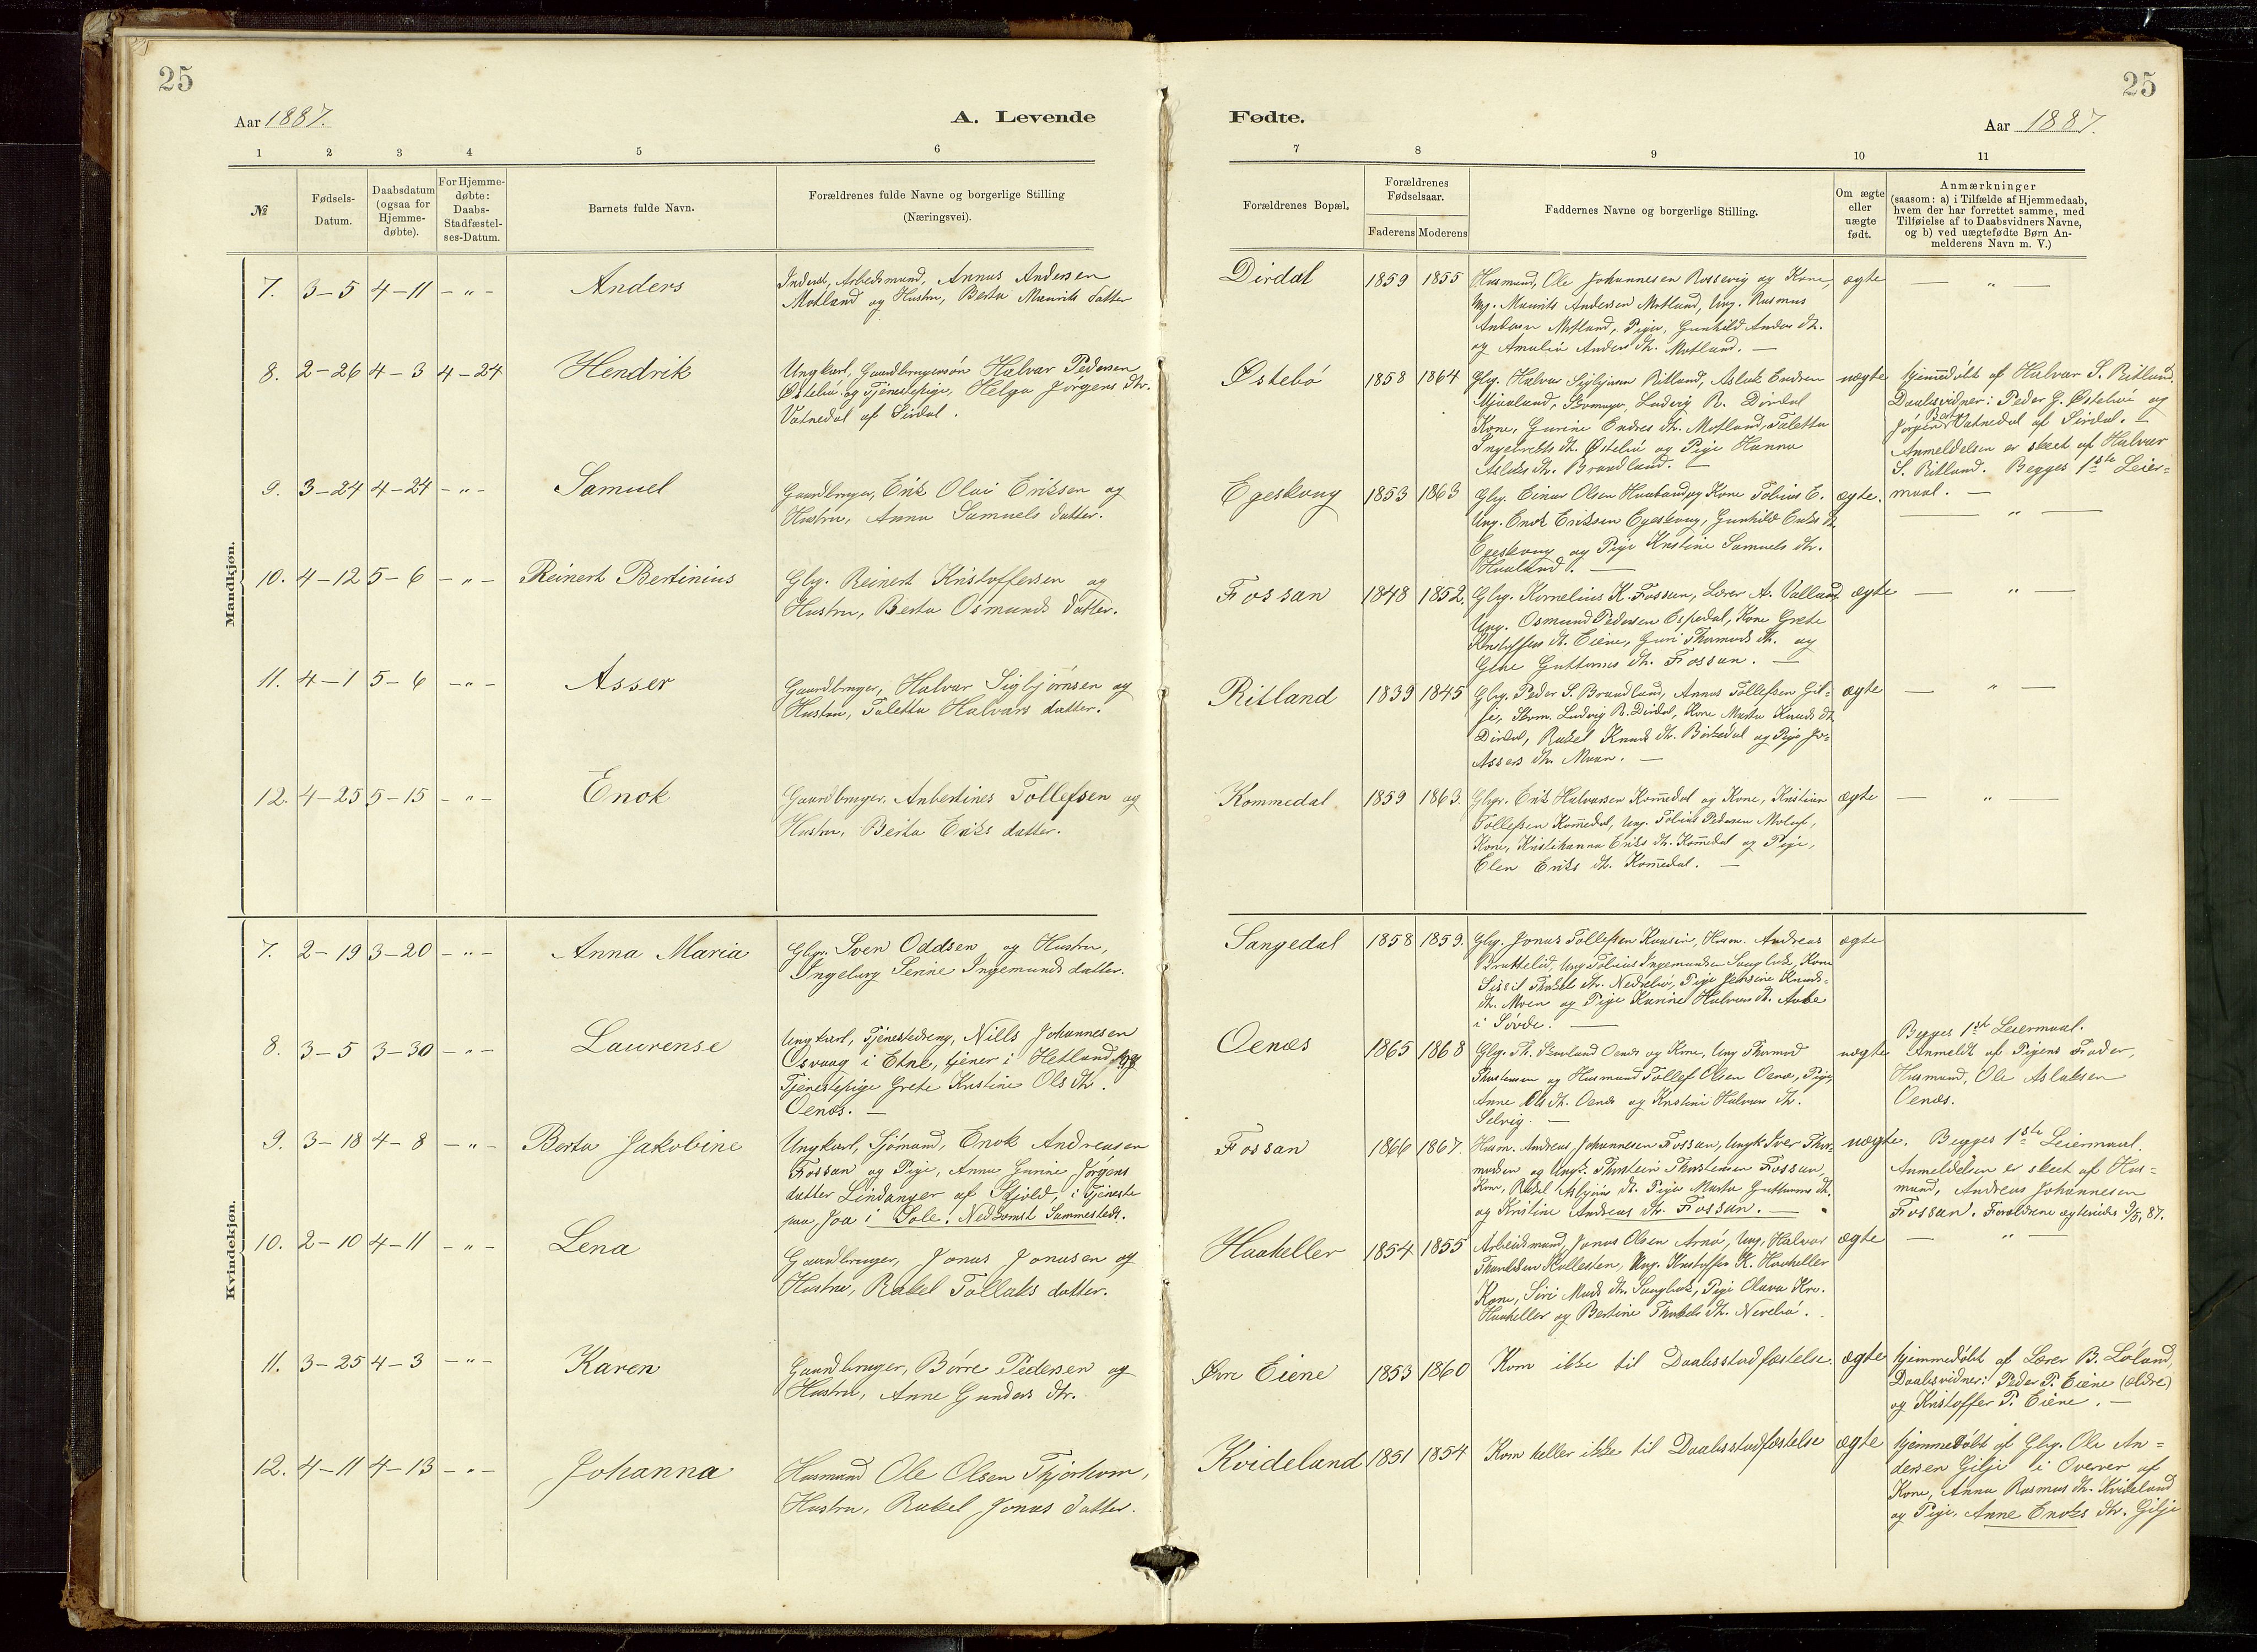 25
25
Aar 1887.
A. Levende
Fødte.
Aar 1887.
1
2
3
4
5
6
7
8
9
10
11
№
Fødsels-
Datum.
Daabsdatum
(ogsaa for
Hjemme-
døbte).
For Hjemme-
døbte:
Daabs-
Stadfæstel-
ses-Datum.
Barnets fulde Navn.
Forældrenes fulde Navne og borgerlige Stilling
(Næringsvei).
Forældrenes Bopæl.
Forældrenes
Fødselsaar.
Faderens
Moderens
Faddernes Navne og borgerlige Stilling.
Om ægte
eller
uægte
født.
Anmærkninger
(saasom: a) i Tilfælde af Hjemmedaab,
hvem der har forrettet samme, med
Tilføielse af to Daabsvidners Navne,
og b) ved uægtefødte Børn An-
melderens Navn m. V.)
Mandkjøn.
7. 3-5 4-11 - " - Anders
Inderst, Arbeidsmand, Annas Andersen
Motland og Hustru, Berta Maurits datter
Dirdal 1859 1855
Husmand, Ole Johannesen Rossevig og Kone,
Ung. Maurits Andersen Motland, Ung. Rasmus
Andersen Motland, Pige, Gunhild Anders dtr.
og Amalia Anders dtr. Motland. —
ægte — " —
8. 2-26 4-3 4-24 Hendrik
Ungkarl, Gaardbrugersøn Halvar Pedersen
Østebø og Tjenestepige, Helga Jørgens dtr.
Vatnedal af Sirdal.
Østebø 1858 1864
Gbrg. Halvar Sigbjørnsen Ritland, Aslak Endresen
Mjaaland, Skomager, Ludvig R. Dirdal
Kone, Gurine Endres dtr. Motland, Taletta
Ingebrets dtr. Østebø og Pige Hanna
Aslaks dtr. Brandland. —
uægte
Hjemmedøbt af Halvar S. Ritland.
Daabsvidner: Peder G. Østebø og
Jørgen Vatnedal af Sirdal. —
Anmeldelsen er skeet af Halvar
S. Ritland. Begges 1ste Leier-
maal. —
9. 3-24 4-24 - " - Samuel
Gaardbruger, Erik Olai Eriksen og
Hustru, Anna Samuels datter.
Egeskoug 1853 1863
Gbrg. Einar Olsen Haaland og Kone Tobine E.
Ung. Enok Eriksen Egeskoug, Gunhild Eriks dtr.
Egeskoug og Pige Kristine Samuels dtr.
Haaland. —
ægte. — " —
10. 4-12 5-6 - " - Reinert Bertinius
Gbrg. Reinert Kristoffersen og
Hustru, Berta Osmunds datter.
Fossan 1848 1852.
Gbrg. Kornelius K. Fossan, Lærer A. Valland
Ung. Osmund Pedersen Espedal, Kone Grete
Kristoffers dt. Eiene, Guri Thormods dtr. og
Gine Guttorms dtr. Fossan. —
ægte — " —
11. 4-1 5-6 - " - Asser
Gaardbruger, Halvar Sigbjørnsen og
Hustru, Taletta Halvars datter.
Ritland 1839 1845
Gbrg. Peder S. Brandland, Annas Tollefsen Gil-
je, Skom. Ludvig R. Dirdal, Kone Marta Knuds dtr.
Dirdal, Rakel Knuds dtr. Birkedal og Pige
Assers dtr. Moen. —
ægte — " —
12. 4-25 5-15 - " - Enok
Gaardbruger, Anbertines Tollefsen og
Hustru, Berta Eriks datter.
Kommedal 1859 1863.
Gbgr. Erik Halvarsen Komedal og Kone, Kristian
Tollefsen Komedal, Ung. Tobias Pedersen
Kone, Kristehanna Eriks dtr. Komedal og Pige,
Elen Eriks dtr. Komedal. —
ægte — " —
Kvindekjøn.
7. 2-19 3-20 - " - Anna Maria
Gbgr. Sven Oddsen og Hustru,
Ingeborg Serine Ingemunds datter.
Sangedal 1858 1859.
Gbrg. Jonas Tollefsen, Husm. Andreas
Brattelid, Ung. Tobias Ingemundsen, Kone
Sissil Thokels dtr. Nedrebø, Pige Jensine Knuds-
dtr. Moen og Pige Karine Halvars dtr.
i Søvde. —
ægte
8. 3-5 3-30 - " - Laurense
Ungkarl, Tjenestedreng, Nills Johannesen
Osvaag i Etne, tjener i Hetland, og
Tjenestepige Grete Kristine Ols dtr.
Oenæs. —
Oenæs 1865 1868
Gbrg. Th. Oenæs og Kone, Ung. Thormod
Thorstensen og Husmand Tollef Olsen Oenæs, Pige
Anne Ols dt. Oenæs og Kristine Halvars dtr.
Selvig. —
uægte
Begges 1ste Leiermaal.
Anmeldt af Pigens Fader,
Husmand, Ole Aslaksen
Oenæs.
9. 3-18 4-8 - " - Berta Jakobine
Ungkarl, Sjømand, Enok Andreasen
Fossan og Pige, Anna Gurine Jørgens
datter Lindanger af Skjold, i Tjeneste
paa Joa i Sole. Nedkomst Sammesteds.
Fossan 1866 1867.
Husm. Andreas Johannesen Fossan, Ungk. Iver Thor-
modsen og Ungk. Thorstein Thorstensen Fossan,
Kone, Rakel Asbjørns dt. Pige Marta Guttorms dt.
og Kristine Andreas dtr. Fossan. —
uægte. Begges 1ste Leiermaal.
Anmeldelsen er skeet af Hus-
mand, Andreas Johannesen
Fossan. Forældrene ægteviedes 3/5, 87.
10. 2-10 4-11 - " - Lena
Gaardbruger, Jonas Jonasen og
Hustru, Rakel Tollaks datter.
Haakeller 1854 1855
Arbeidsmand, Jonas Olsen Arnø, Ung. Halvar
Ung. Kristoffer K. Haakeller
Kone, Siri Mads dtr. Pige Olava Kr.
Haakeller og Bertine Thorkels dtr. Nerebø.
ægte — " —
11. 3-25 4-3 - " - Karen
Gaardbruger, Børre Pedersen og
Hustru, Anne Gunders dtr.
Øvre Eiene 1853 1860 Kom ikke til Daabsstadfæstelse. ægte
Hjemmedøbt af Lærer B. Løland,
Daabsvidner: Peder P. Eiene (ældre)
og Kristoffer P. Eiene. —
12. 4-11 4-13 - " - Johanna
Husmand Ole Olsen Tkjørhom,
Hustru, Rakel Jonas datter.
Kvideland 1851 1854 Kom heller ikke til Daabsstadfæstelse ægte
Hjemmedøbt af Gbrg. Ole An-
dersen Gilje i Overvær af
Kone, Anna Rasmus dtr. Kvideland
og Pige, Anne Enoks dtr. Gilje